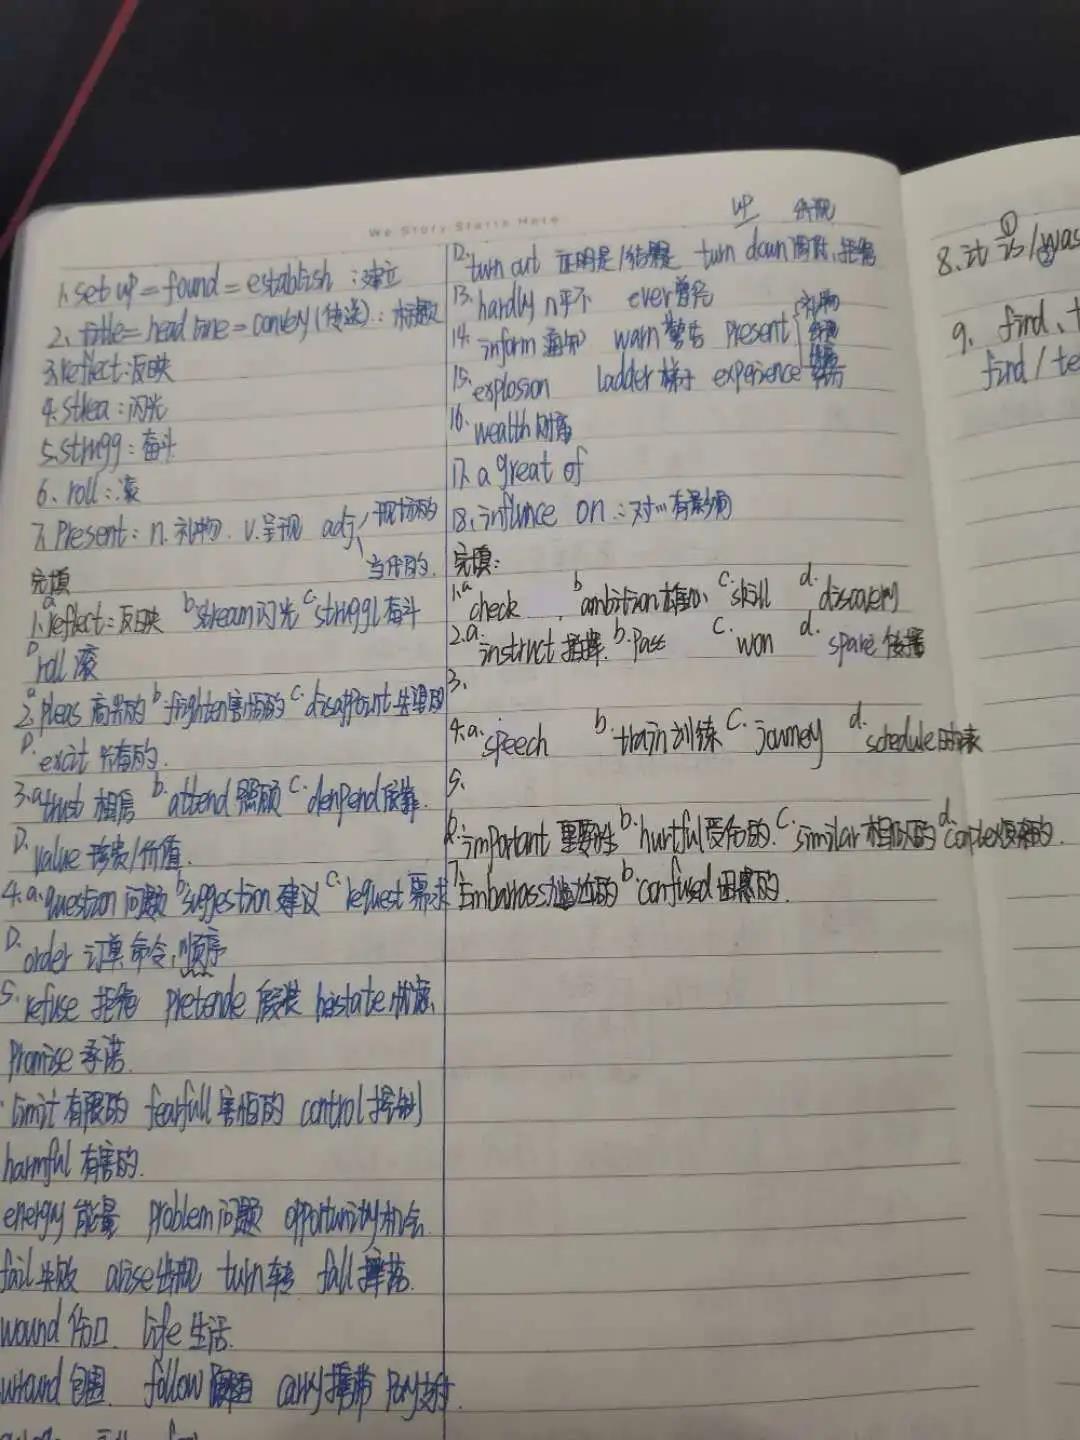 We Story Starts Here
1. set up = found = establish : 建立
2. title = head line = convey (传送) : 标题
3. reflect : 反映
4. strea : 闪光
5. strugg : 奋斗
6. roll : 滚
7. Present : n. 礼物. v. 呈现 adj
现场的
当代的.
完填
1. a reflect : 反映 b stream 闪光 c. struggl 奋斗
D roll 滚
2. a pleas 高兴的 b frighten 害怕的 c. disappoint 失望的
D. excit
3. a trust 相信 b. attend 照顾 c. denpend 依靠.
D. value 珍贵/价值.
4. a. question 问题 b suggestion 建议 c. request 要求
D. order 订单 命令, 顺序
5. refuse 拒绝 pretende 假装 heistate 忧虑.
Promise 承诺.
limit 有限的 fearfull 害怕的 control 控制
harmful 有害的.
energy 能量 problem 问题 opportunity 机会.
fail 失败 arise 出现 turn 转 fall 掉落.
wound 伤口. life 生活.
包围. follow carry 携带 Pay 支付.
up 出现
12. turn out 证明是/结果是 turn down 调低, 拒绝
13. hardly n乎不 ever 曾经
14. inform 通知 warn 警告 present 礼物
15. explosion ladder 梯子 experience
16. wealth 财富
17. a great of
18. influnce on : 对… 有影响
完填:
1. a check b ambition c. skill d. discovery
2. a. instruct 指挥. b. Pass c. won d. spare 传播
3.
4. a. speech b. train 训练 c. journey d. schedule 时间表
5.
6. important 重要性 b. hurtful 受伤的. c. similar 相似的 d.
7. Embarrass 尴尬的 b. confused 困惑的.
8. it is / was
9. find, t
find / te